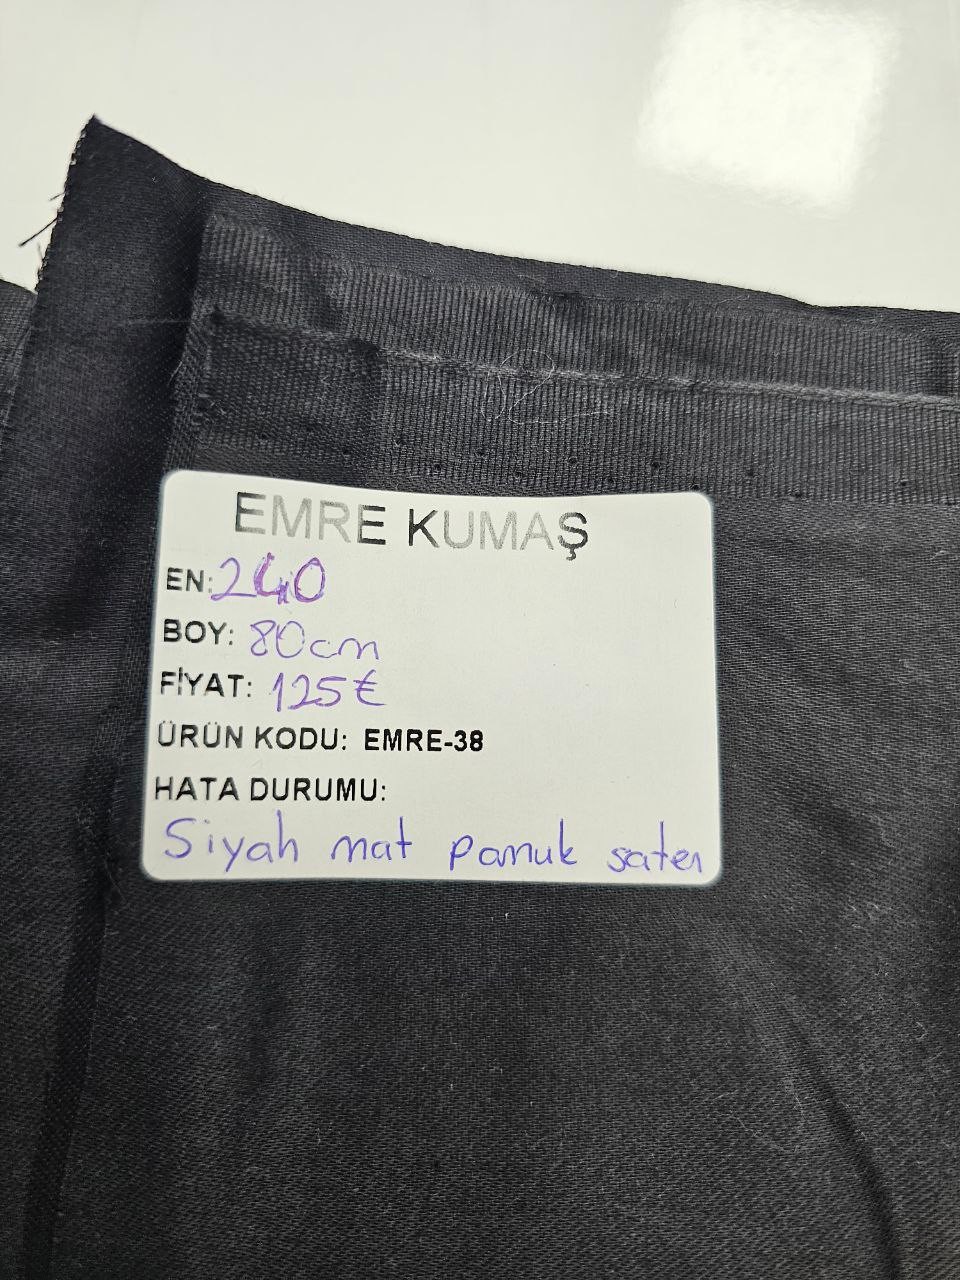 EMRE KUMAŞ
EN: 240
BOY: 80cm
FİYAT: 125₺
ÜRÜN KODU: EMRE-38
HATA DURUMU:
Siyah mat pamuk saten